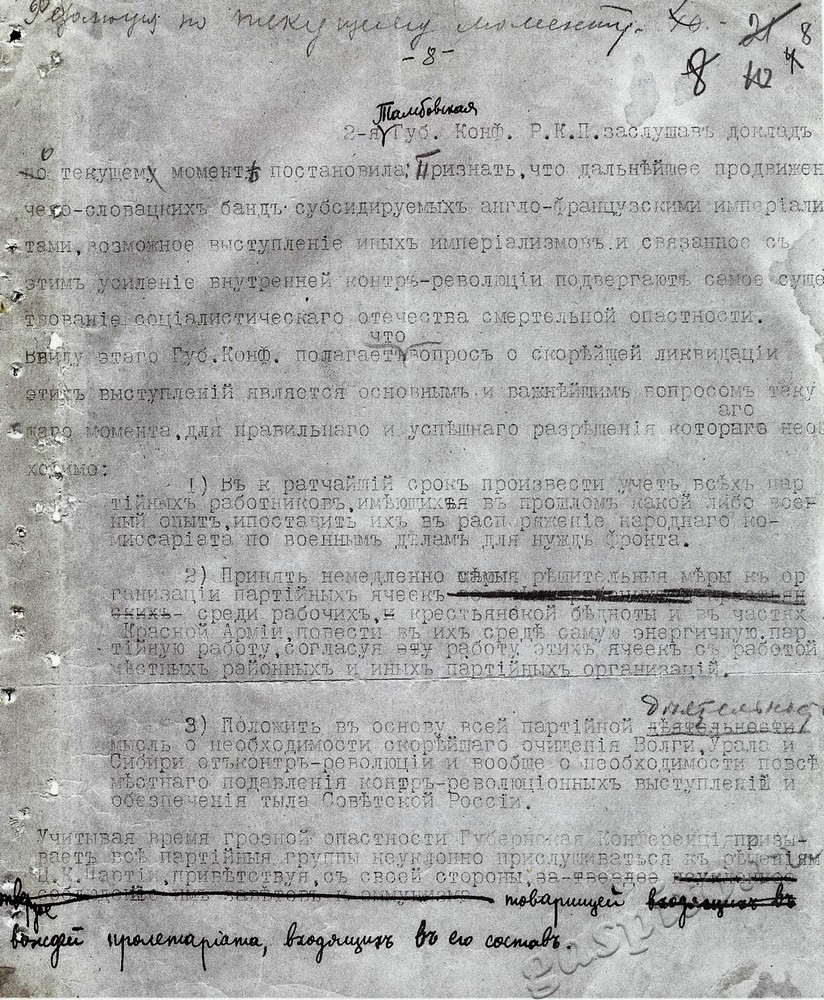 Резолюция по текущему моменту.
-8-
21 8
8 112 4
Тамбовская
2-я Губ. Конф. Р.К.П. заслушавъ докладъ
о
по текущему моментѣ постановила: Признать, что дальнѣйшее продвижен
чехо-словацкихъ бандъ субсидируемыхъ англо-французскими имперіали
тами, возможное выступленіе иныхъ имперіализмовъ и связанное съ
этимъ усиленіе внутренней контръ-революціи подвергаютъ самое суще
твованіе соціалистическаго отечества смертельной опастности.
что
Ввиду этаго Губ.Конф. полагаетъ вопросъ о скорѣйшей ликвидаціи
этихъ выступленій является основнымъ и важнѣйшимъ вопросомъ теку
аго
щаго момента, для правильнаго и успѣшнаго разрѣшенія которыхъ необ
ходимо:
1) Въ к ратчайшій срокъ произвести учетъ всѣхъ пар
тійныхъ работниковъ, имѣющихъя въ прошломъ какой либо воен
ный опытъ, ипоставить ихъ въ расп ряженіе народнаго ко-
миссаріата по военнымъ дѣламъ для нуждъ фронта.
2) Принять немедленно самыя рѣшительныя мѣры къ ор
ганизаціи партійныхъ ячеекъ
скихъ- среди рабочихъ, и крестьянской бѣдноты и въ частях
Красной Арміи, повести въ ихъ средѣ самую энергичную пар
тійную работу, согласуя эту работу этихъ ячеек съ работой
мѣстныхъ районныхъ и иныхъ партійныхъ организацій.
дѣятельност
3) Положить въ основу всей партійной дѣятельности
мысль о необходимости скорѣйшаго очищенія Волги, Урала и
Сибири отъконтръ-революціи и вообще о необходимости повсѣ
мѣстнаго подавленія контръ-революціонныхъ выступленій и
обезпеченія тыла Совѣтской Россіи.
Учитывая время грозной опастности Губернская Конференція призы-
ваетъ всѣ партійныя группы неуклонно прислушиваться къ рѣшеніям
Ц.К.Партіи, привѣтствуя, съ своей стороны, за твердое неуклонное
твердое соблюденіе имъ завѣтовъ коммунизма товарищей входящихъ въ
вождей пролетаріата, входящихъ въ его составъ.